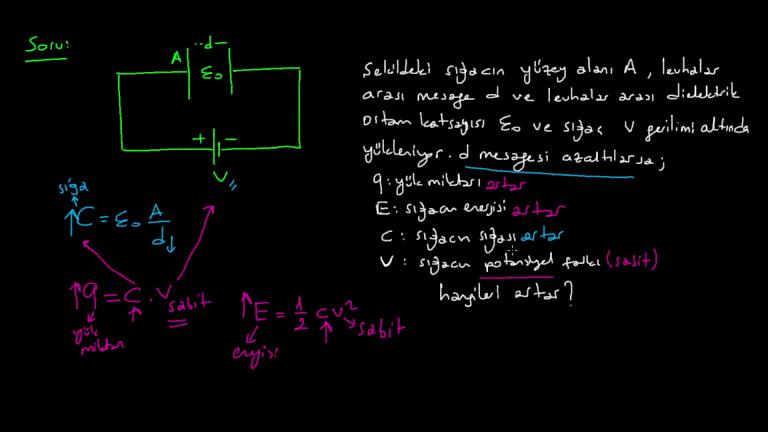 Soru:
A
d
ε₀
+ -
V
Şekildeki sığacın yüzey alanı A, levhalar
arası mesafe d ve levhalar arası dielektrik
ortam katsayısı ε₀ ve sığaç V gerilimi altında
yükleniyor. d mesafesi azaltılırsa;
q: yük miktarı artar
E: sığacın enerjisi artar
C: sığacın sığası artar
V: sığacın potansiyel farkı (sabit)
hangileri artar?
sığa
↑C = ε₀ A/d↓
↑q = C↑ . V sabit
yük
miktarı
↑E = 1/2 CV²
sabit
enerjisi